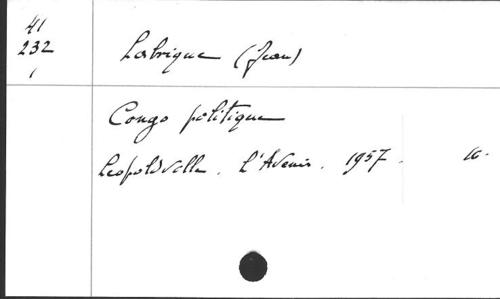 41
232
1
Labrique (Jean)
Congo politique
Leopoldville. L'Avenir. 1957.